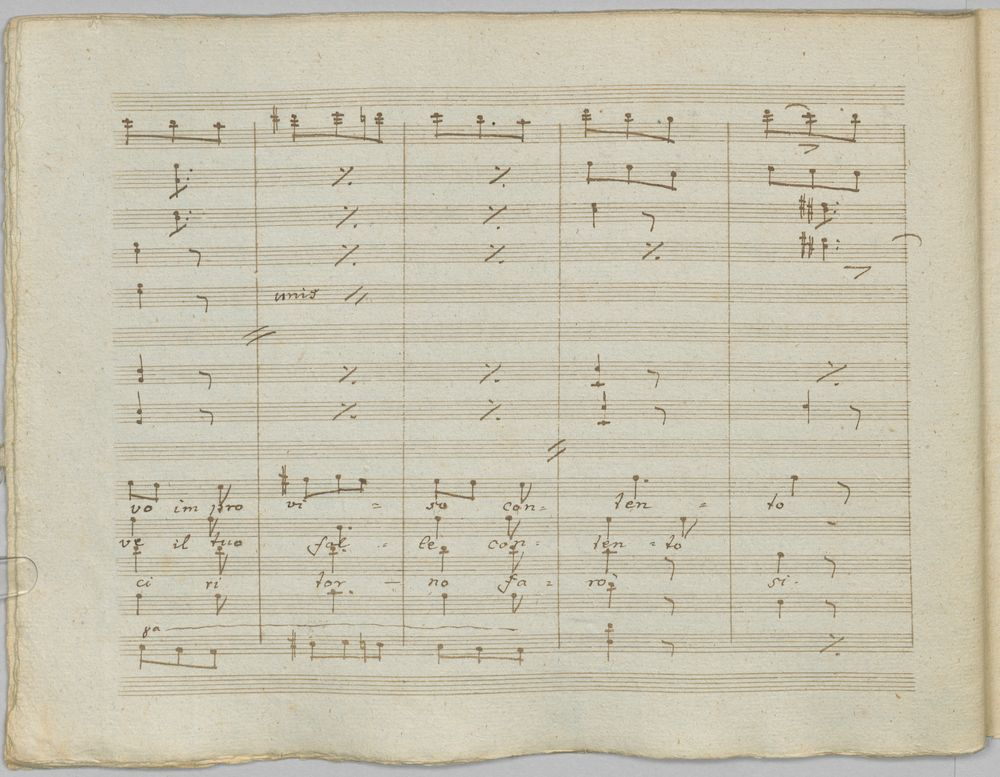 unis
vo im pro vi = so con = ten = to
ve il tuo fal = le con = ten = to
ci ri tor - no fa = rò si.
8a